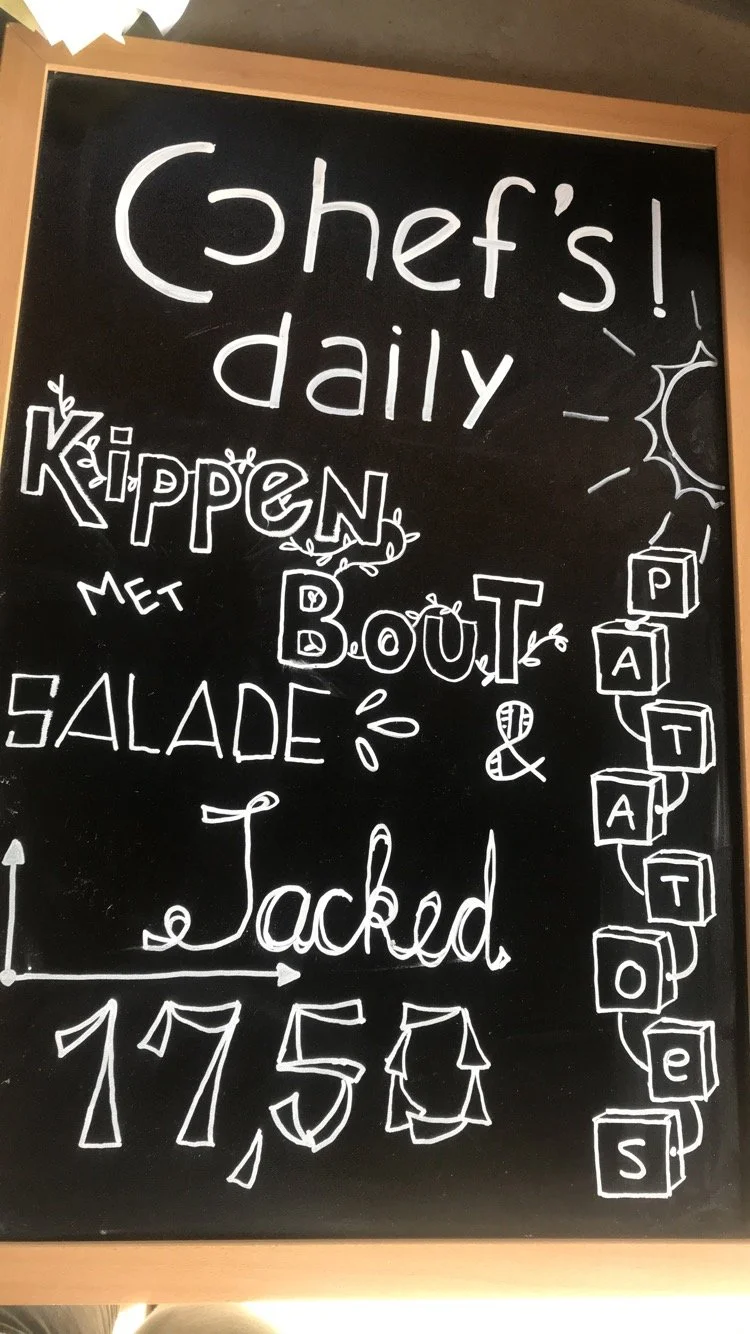 Chef's!
daily
KippeN
MET BOUT
SALADE &
Jacked
17,50
PATATOeS